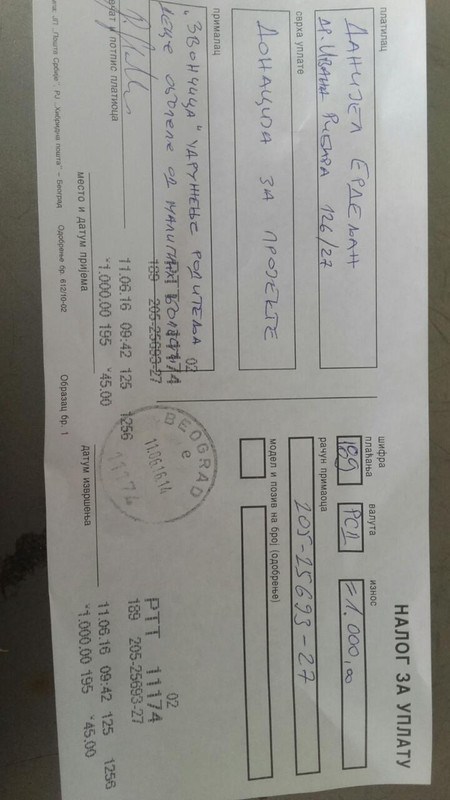 НАЛОГ ЗА УПЛАТУ
платилац
ДАНИЈЕЛ ЕРДЕЉАН
ДР. ИВАНА РИБАРА 126/27
сврха уплате
ДОНАЦИЈА ЗА ПРОЈЕКТЕ
прималац
"ЗВОНЧИЦА" УДРУЖЕЊЕ РОДИТЕЉА
ДЕЦЕ ОБОЛЕЛЕ ОД МАЛИГНИХ БОЛЕСТИ
02
PTT 11174
189 205-25693-27
11.06.16 09:42 125 1256
*1.000,00 195 *45.00
печат и потпис платиоца
место и датум пријема
шифра плаћања
валута
износ
189
РСД
=1.000,00
рачун примаоца
205-25693-27
модел и позив на број (одобрење)
BEOGRAD
e
11.06.16.14
11174
02
PTT 11174
189 205-25693-27
11.06.16 09:42 125 1256
*1.000,00 195 *45.00
датум извршења
ЈП „Поште Србије“ РЈ „Хибридна пошта“ – Београд Одобрење бр. 612/10-02
Образац бр. 1